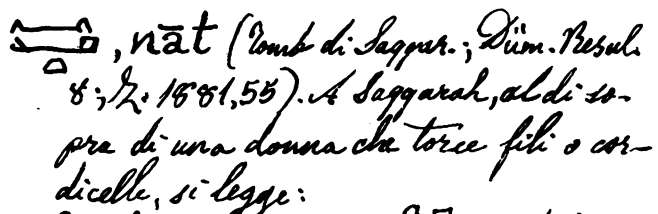 , nāt (Tomb di Saqqar.; Düm. Resul.
8; Z. 1881,55). A Saqqarah, al di so-
pra di una donna che torce fili o cor-
dicelle, si legge: